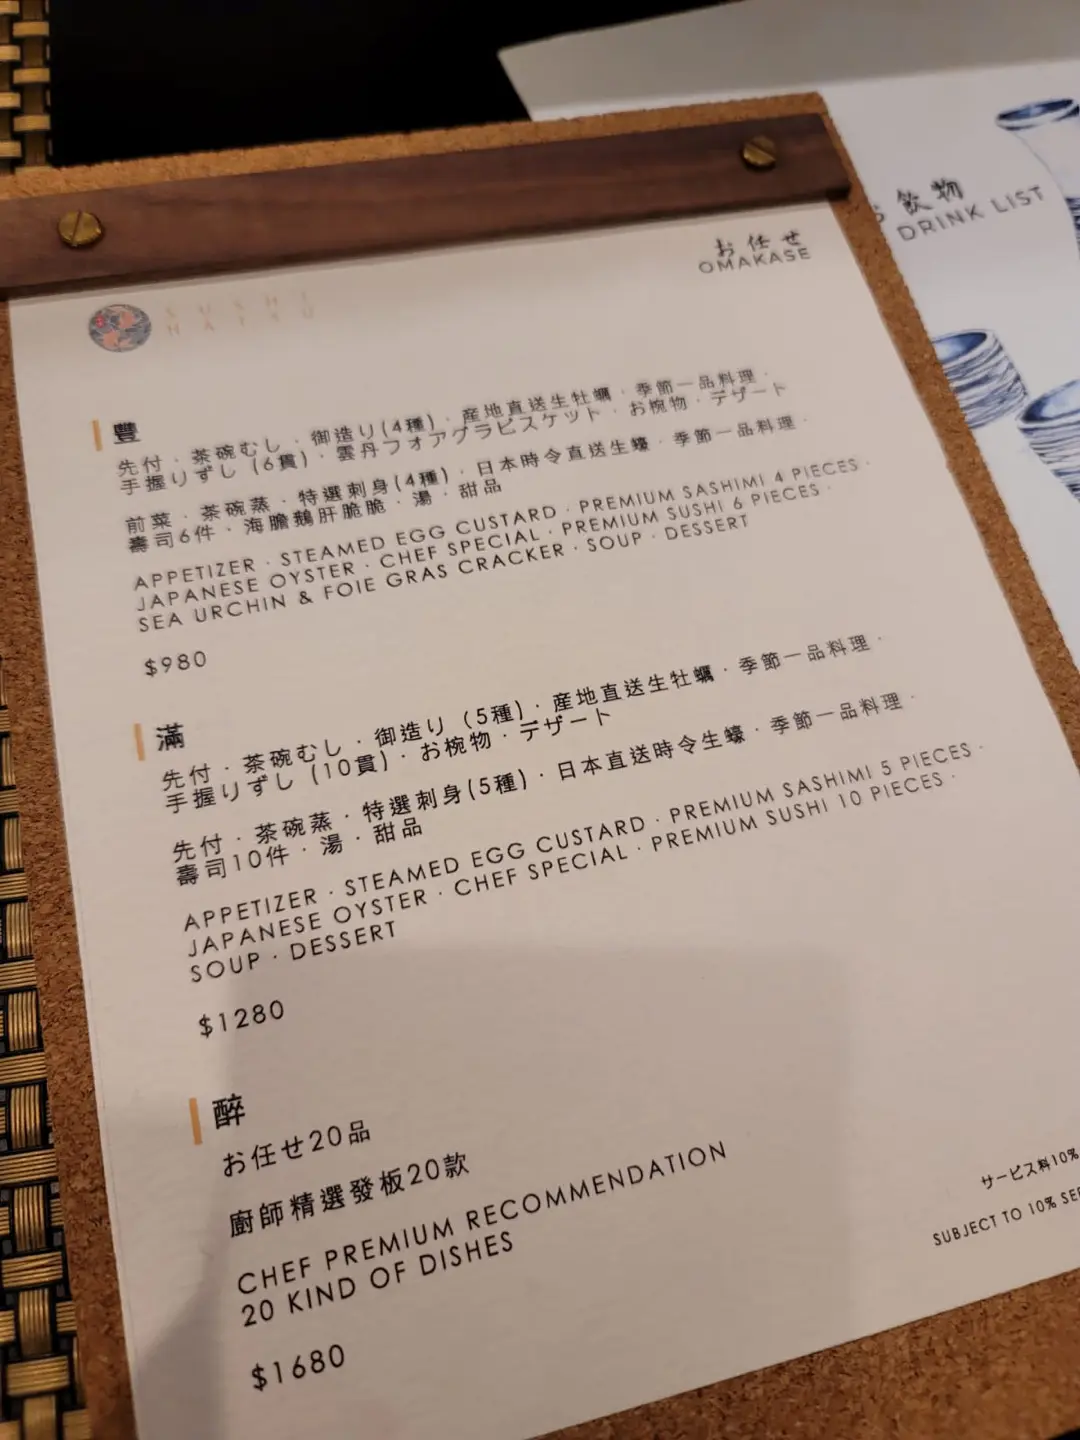 お飲物
DRINK LIST
お任せ
OMAKASE
SUSHI
豐
先付 · 茶碗むし · 御造り(4種) · 産地直送生牡蠣 · 季節一品料理 ·
手握りずし (6貫) · 雲丹フォアグラビスケット · お椀物 · デザート
前菜 · 茶碗蒸 · 特選刺身(4種) · 日本時令直送生蠔 · 季節一品料理 ·
壽司6件 · 海膽鵝肝脆脆 · 湯 · 甜品
APPETIZER · STEAMED EGG CUSTARD · PREMIUM SASHIMI 4 PIECES ·
JAPANESE OYSTER · CHEF SPECIAL · PREMIUM SUSHI 6 PIECES ·
SEA URCHIN & FOIE GRAS CRACKER · SOUP · DESSERT
$980
滿
先付 · 茶碗むし · 御造り (5種) · 産地直送生牡蠣 · 季節一品料理 ·
手握りずし (10貫) · お椀物 · デザート
先付 · 茶碗蒸 · 特選刺身(5種) · 日本直送時令生蠔 · 季節一品料理 ·
壽司10件 · 湯 · 甜品
APPETIZER · STEAMED EGG CUSTARD · PREMIUM SASHIMI 5 PIECES ·
JAPANESE OYSTER · CHEF SPECIAL · PREMIUM SUSHI 10 PIECES ·
SOUP · DESSERT
$1280
醉
お任せ20品
廚師精選發板20款
CHEF PREMIUM RECOMMENDATION
20 KIND OF DISHES
$1680
サービス料10%
SUBJECT TO 10% SER